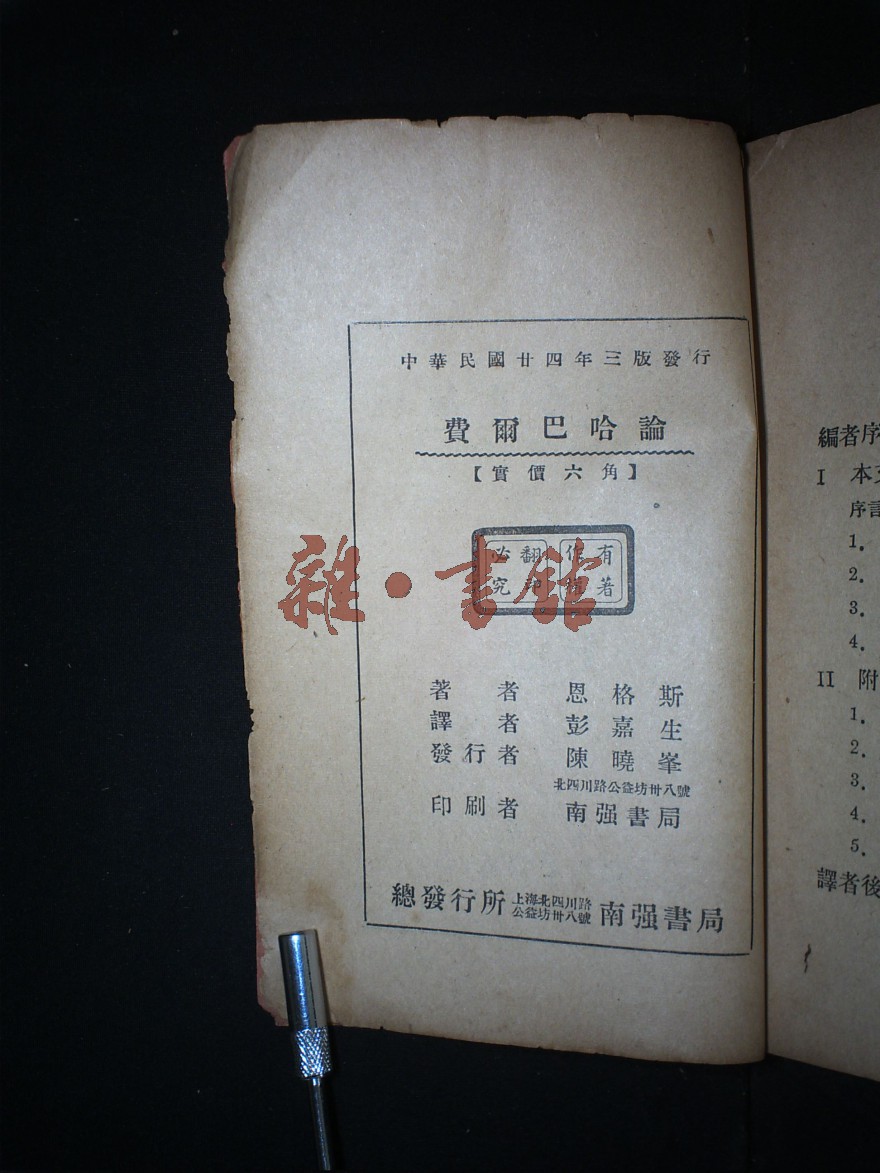 中華民國廿四年三版發行
費爾巴哈論
【實價六角】
有著作權
翻印必究
雜·書館
著者 恩格斯
譯者 彭嘉生
發行者 陳曉峯
北四川路公益坊卅八號
印刷者 南强書局
總發行所 上海北四川路公益坊卅八號 南强書局
編者序
I 本文
序言
1.
2.
3.
4.
II 附
1.
2.
3.
4.
5.
譯者後